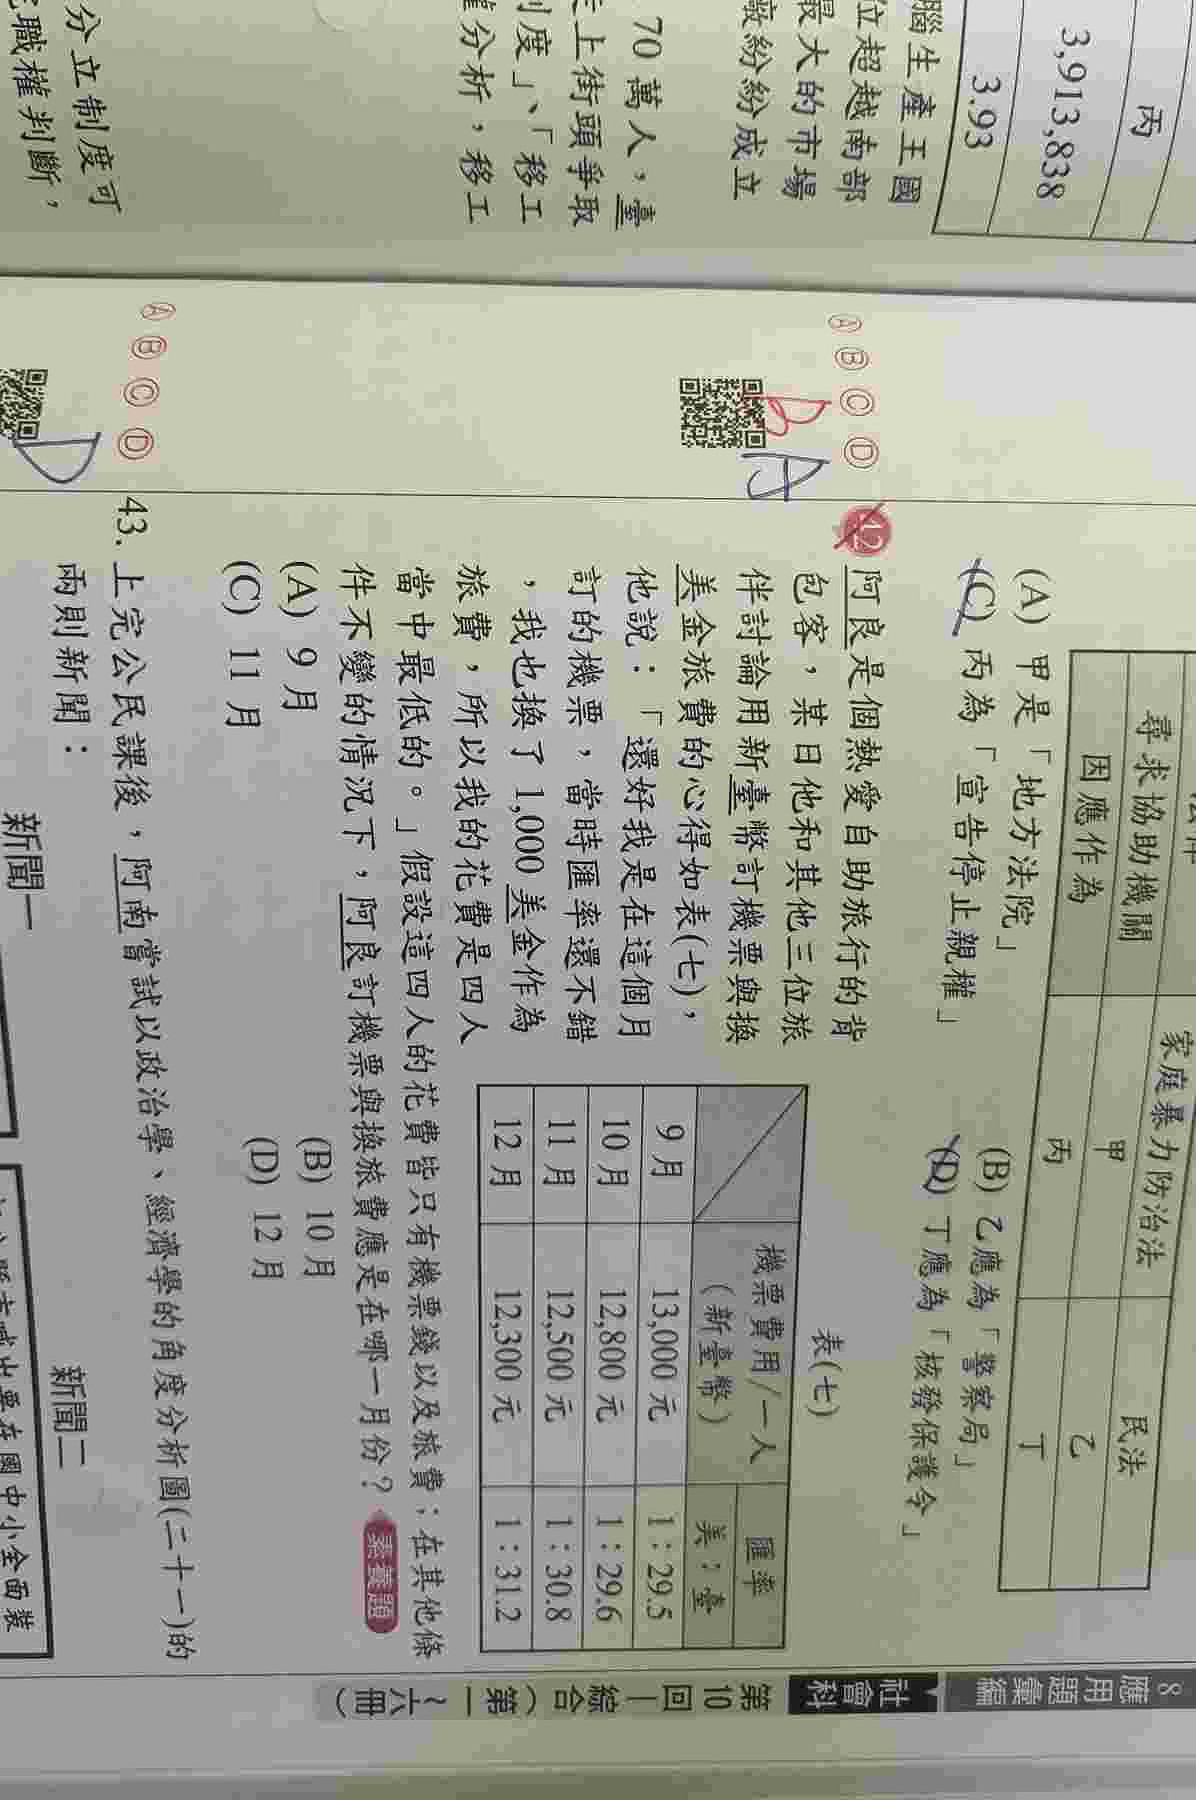 丙
3,913,838
3.93
腦生產王國
位超越南部
最大的市場
廠紛紛成立
70 萬人，臺
上街頭爭取
制度」、「移工
分析，移工
分立制度可
職權判斷，
尋求協助機關
因應作為
家庭暴力防治法
甲
丙
民法
乙
丁
(A) 甲是「地方法院」
(B) 乙應為「警察局」
(C) 丙為「宣告停止親權」
(D) 丁應為「核發保護令」
Ⓐ Ⓑ Ⓒ Ⓓ
B
A
42
阿良是個熱愛自助旅行的背
包客，某日他和其他三位旅
伴討論用新臺幣訂機票與換
美金旅費的心得如表(七)，
他說：「還好我是在這個月
訂的機票，當時匯率還不錯
，我也換了 1,000 美金作為
旅費，所以我的花費是四人
當中最低的。」假設這四人的花費皆只有機票錢以及旅費；在其他條
件不變的情況下，阿良訂機票與換旅費應是在哪一月份？ 素養題
表(七)
機票費用/一人
（新臺幣）
匯率
美：臺
9 月 13,000 元 1：29.5
10 月 12,800 元 1：29.6
11 月 12,500 元 1：30.8
12 月 12,300 元 1：31.2
(A) 9 月 (B) 10 月
(C) 11 月 (D) 12 月
Ⓐ Ⓑ Ⓒ Ⓓ
D
43. 上完公民課後，阿南嘗試以政治學、經濟學的角度分析圖(二十一)的
兩則新聞：
新聞一
新聞二
要在國中小全面裝
8 應用題彙編
社會科
第 10 回—綜合（第一～六冊）